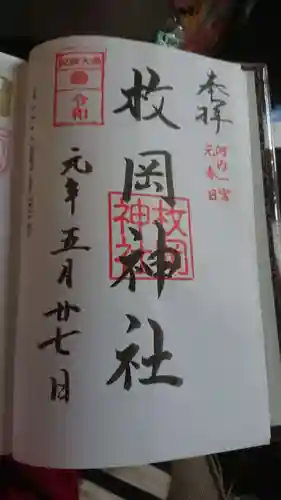 奉拝
河内一宮
元春日
枚岡神社
枚岡
神社
令和
元年五月廿七日